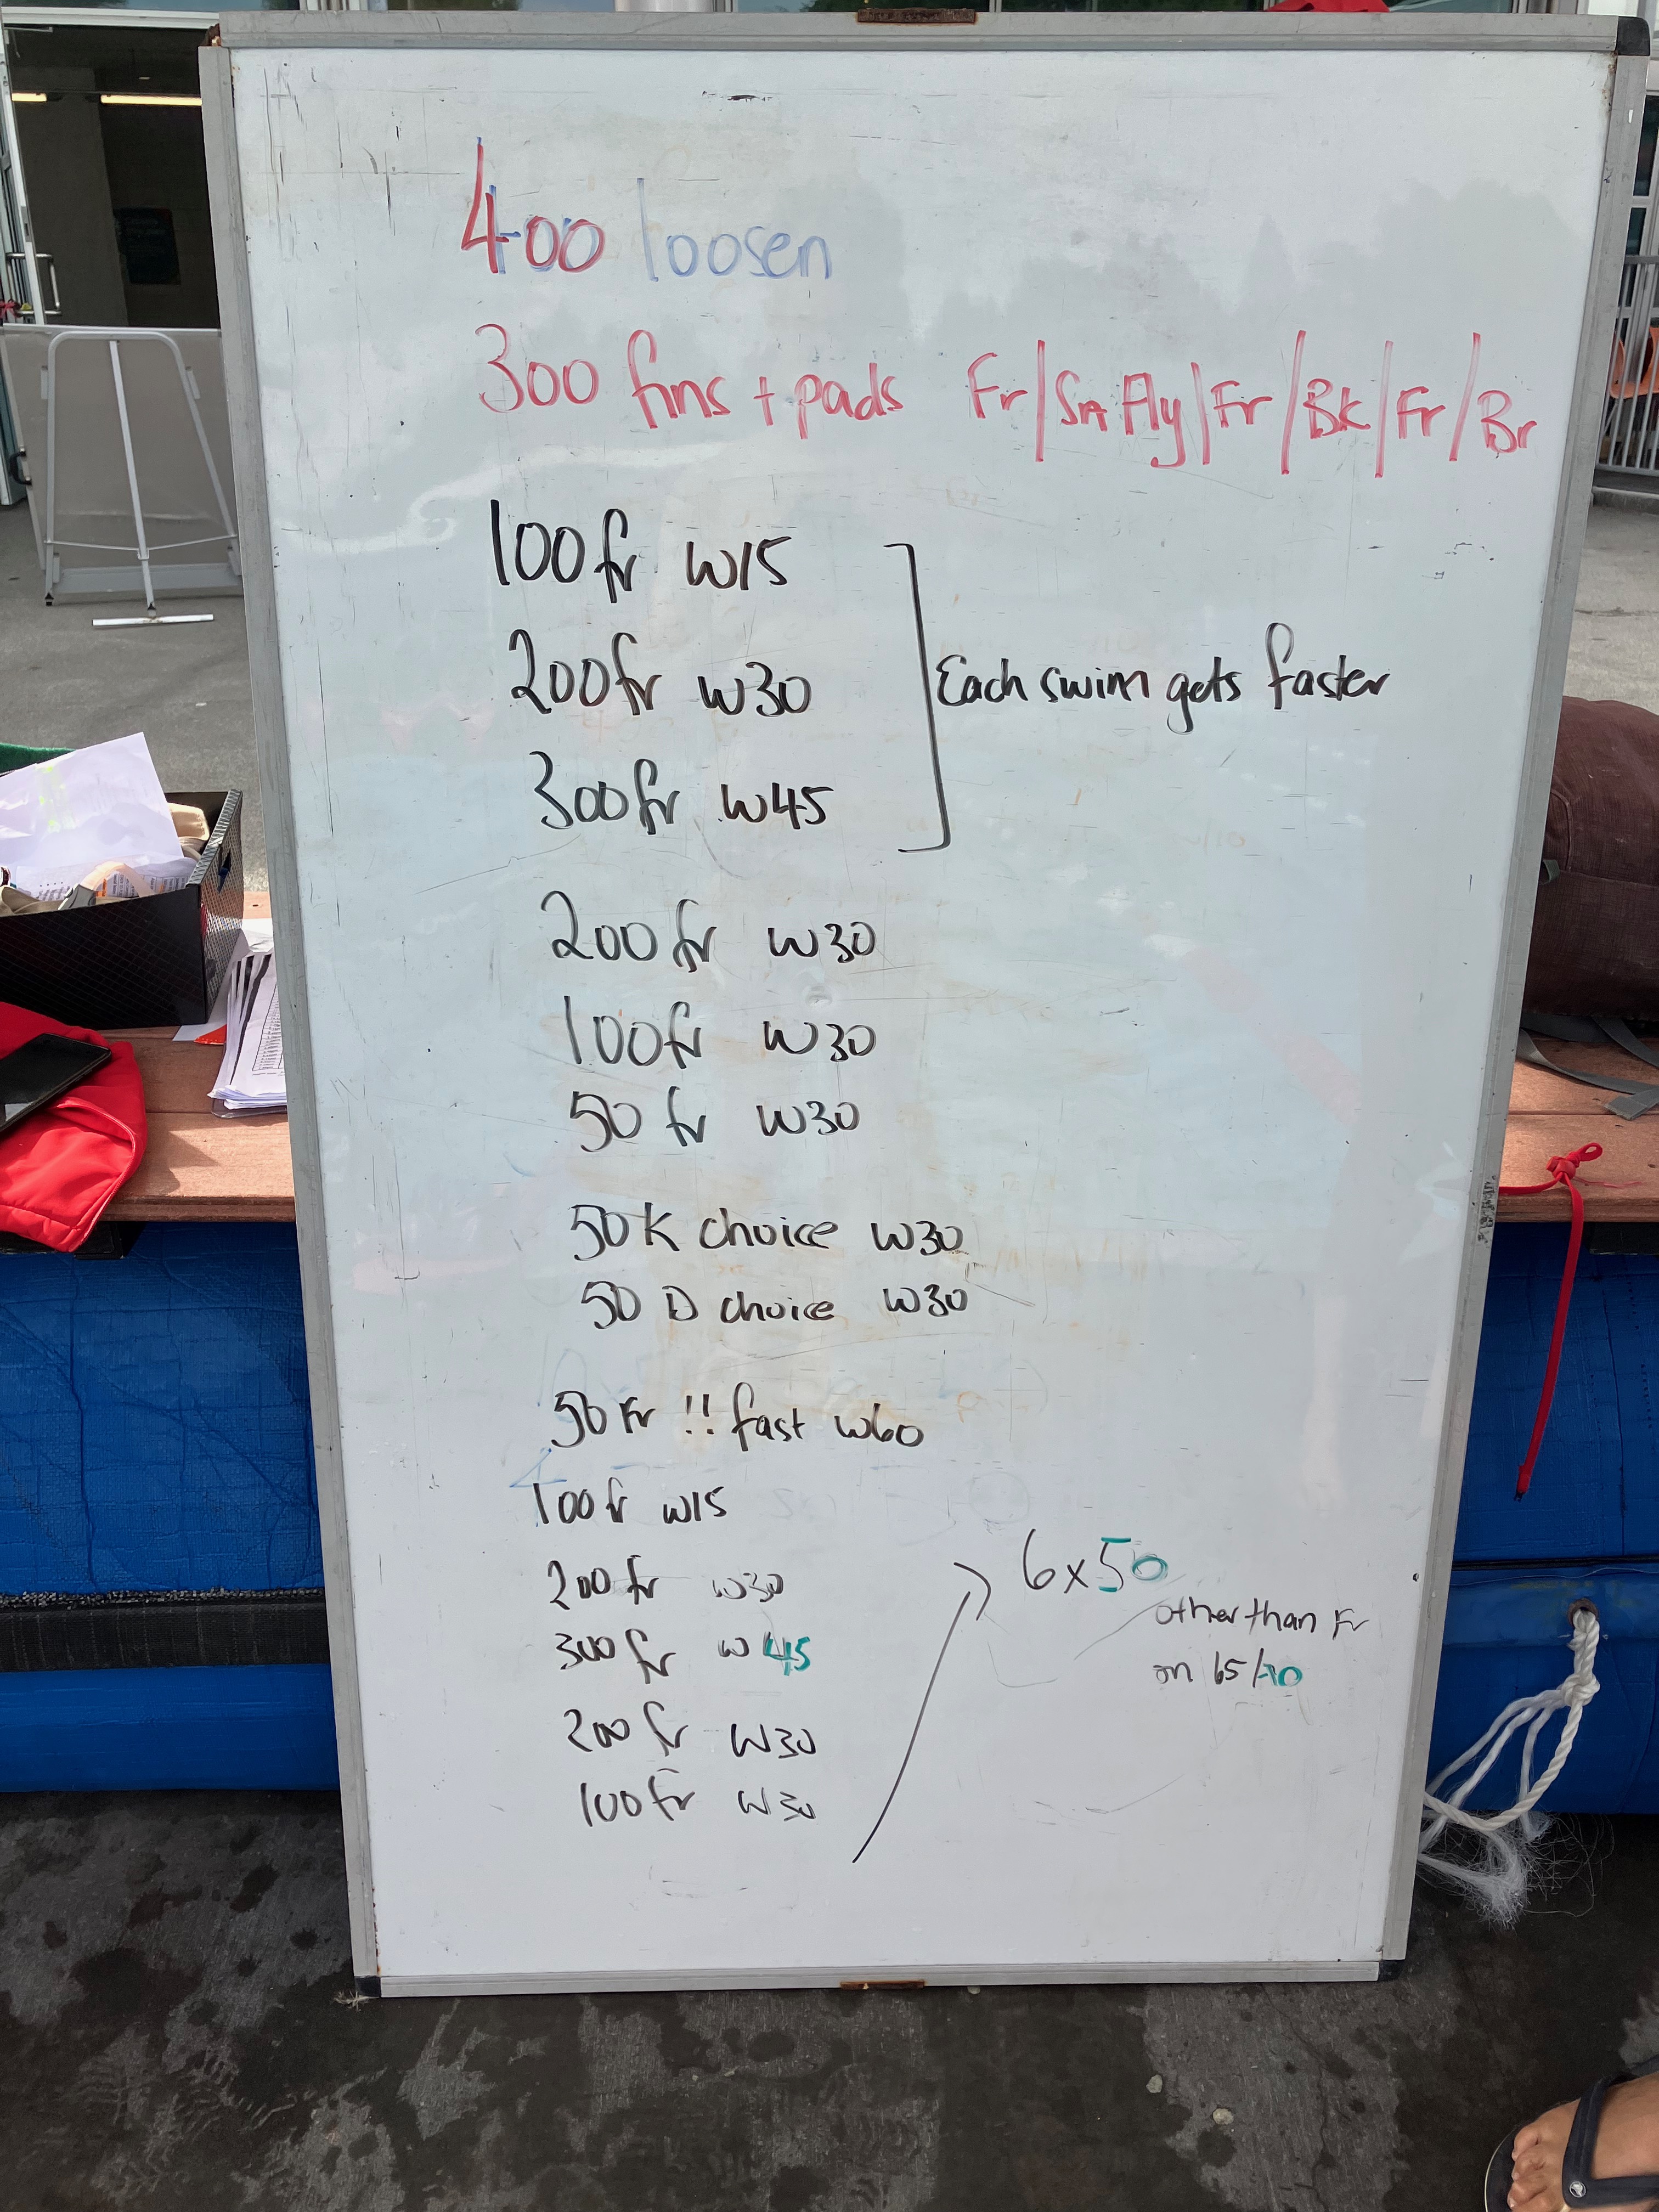 400 loosen
300 fins + pads Fr/Sn Fly/Fr/Bk/Fr/Br
100 fr W15
200 fr W30
300 fr W45
Each swim gets faster
200 fr W30
100 fr W30
50 fr W30
50 K choice W30
50 D choice W30
50 Fr !! fast W60
100 fr W15
200 fr W30
300 fr W45
200 fr W30
100 fr W30
6x50
other than Fr
on 65/70